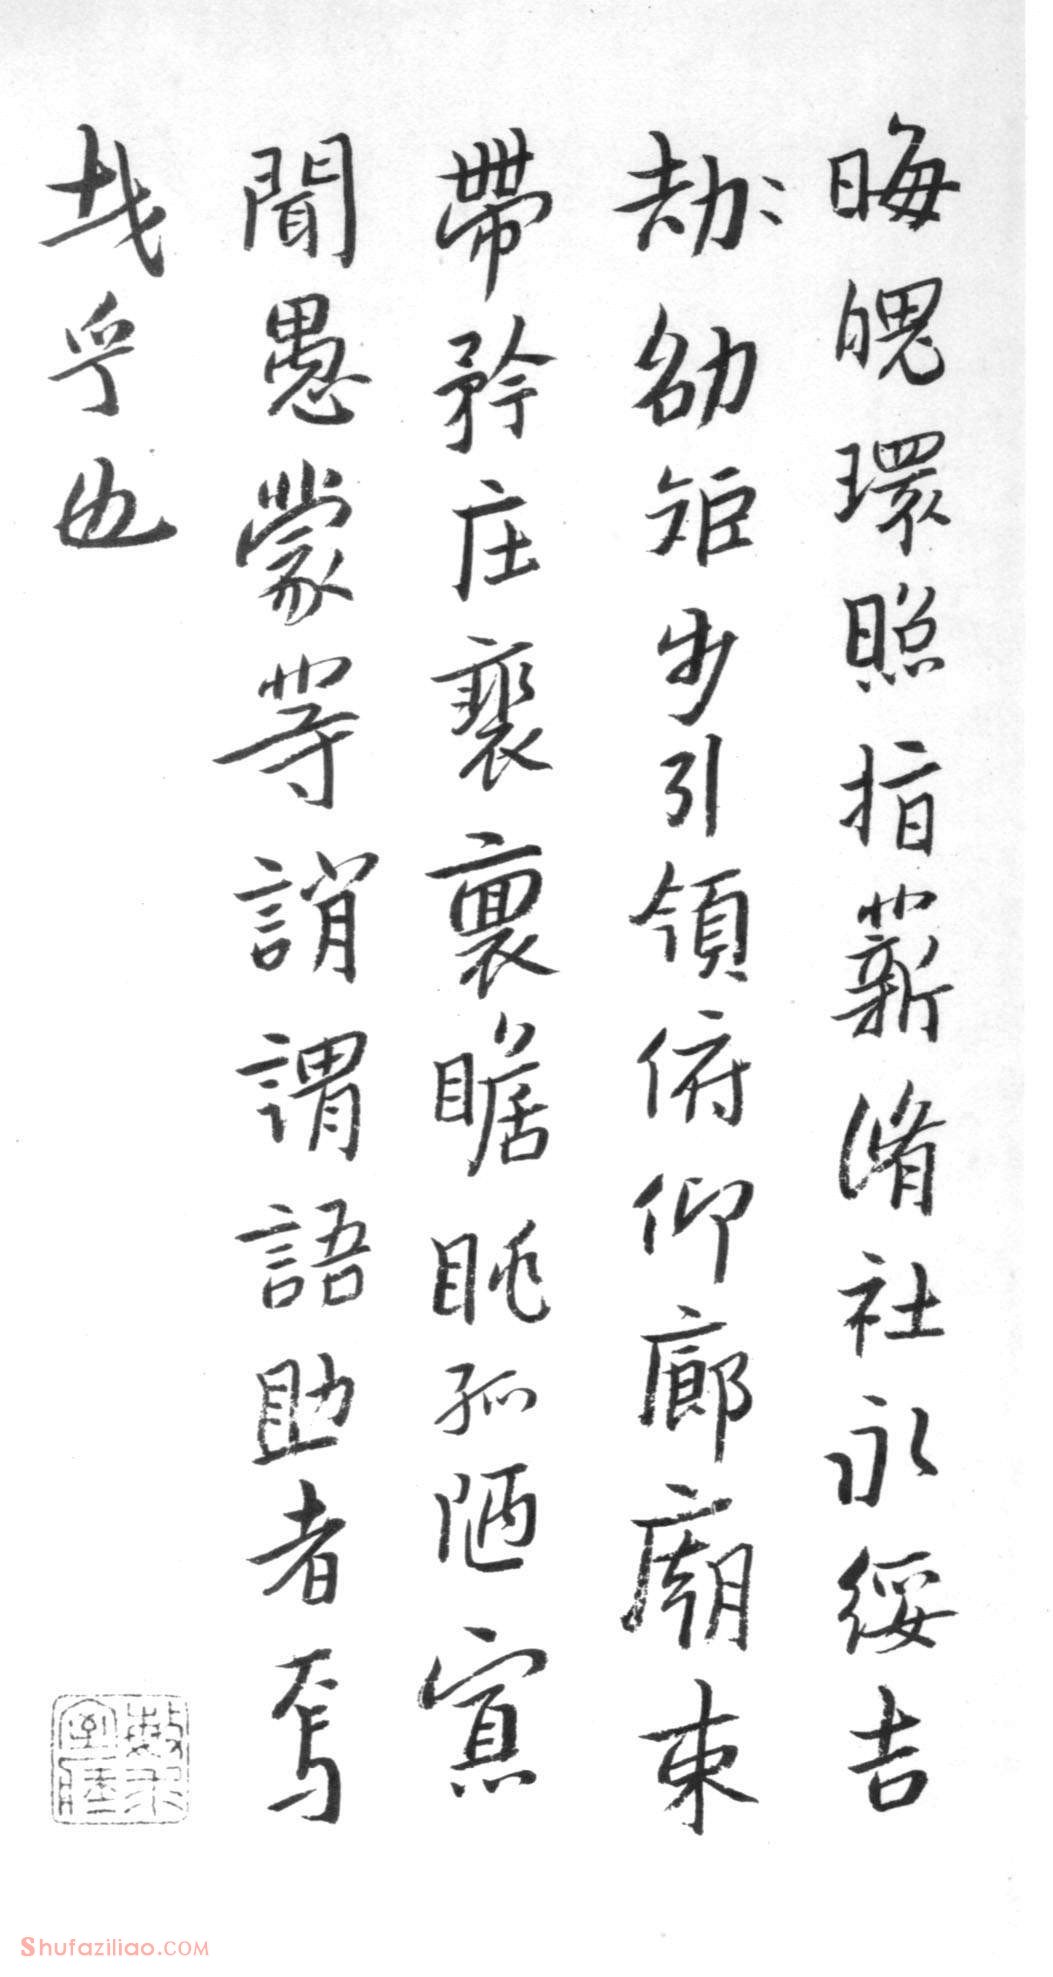 晦魄環照指薪脩社永綏吉
劫﹅劭矩步引領俯仰廊廟束
帶矜庄裴褱瞻眺孤陋寡
聞愚蒙等誚謂語助者焉
哉乎也
Shufaziliao.COM